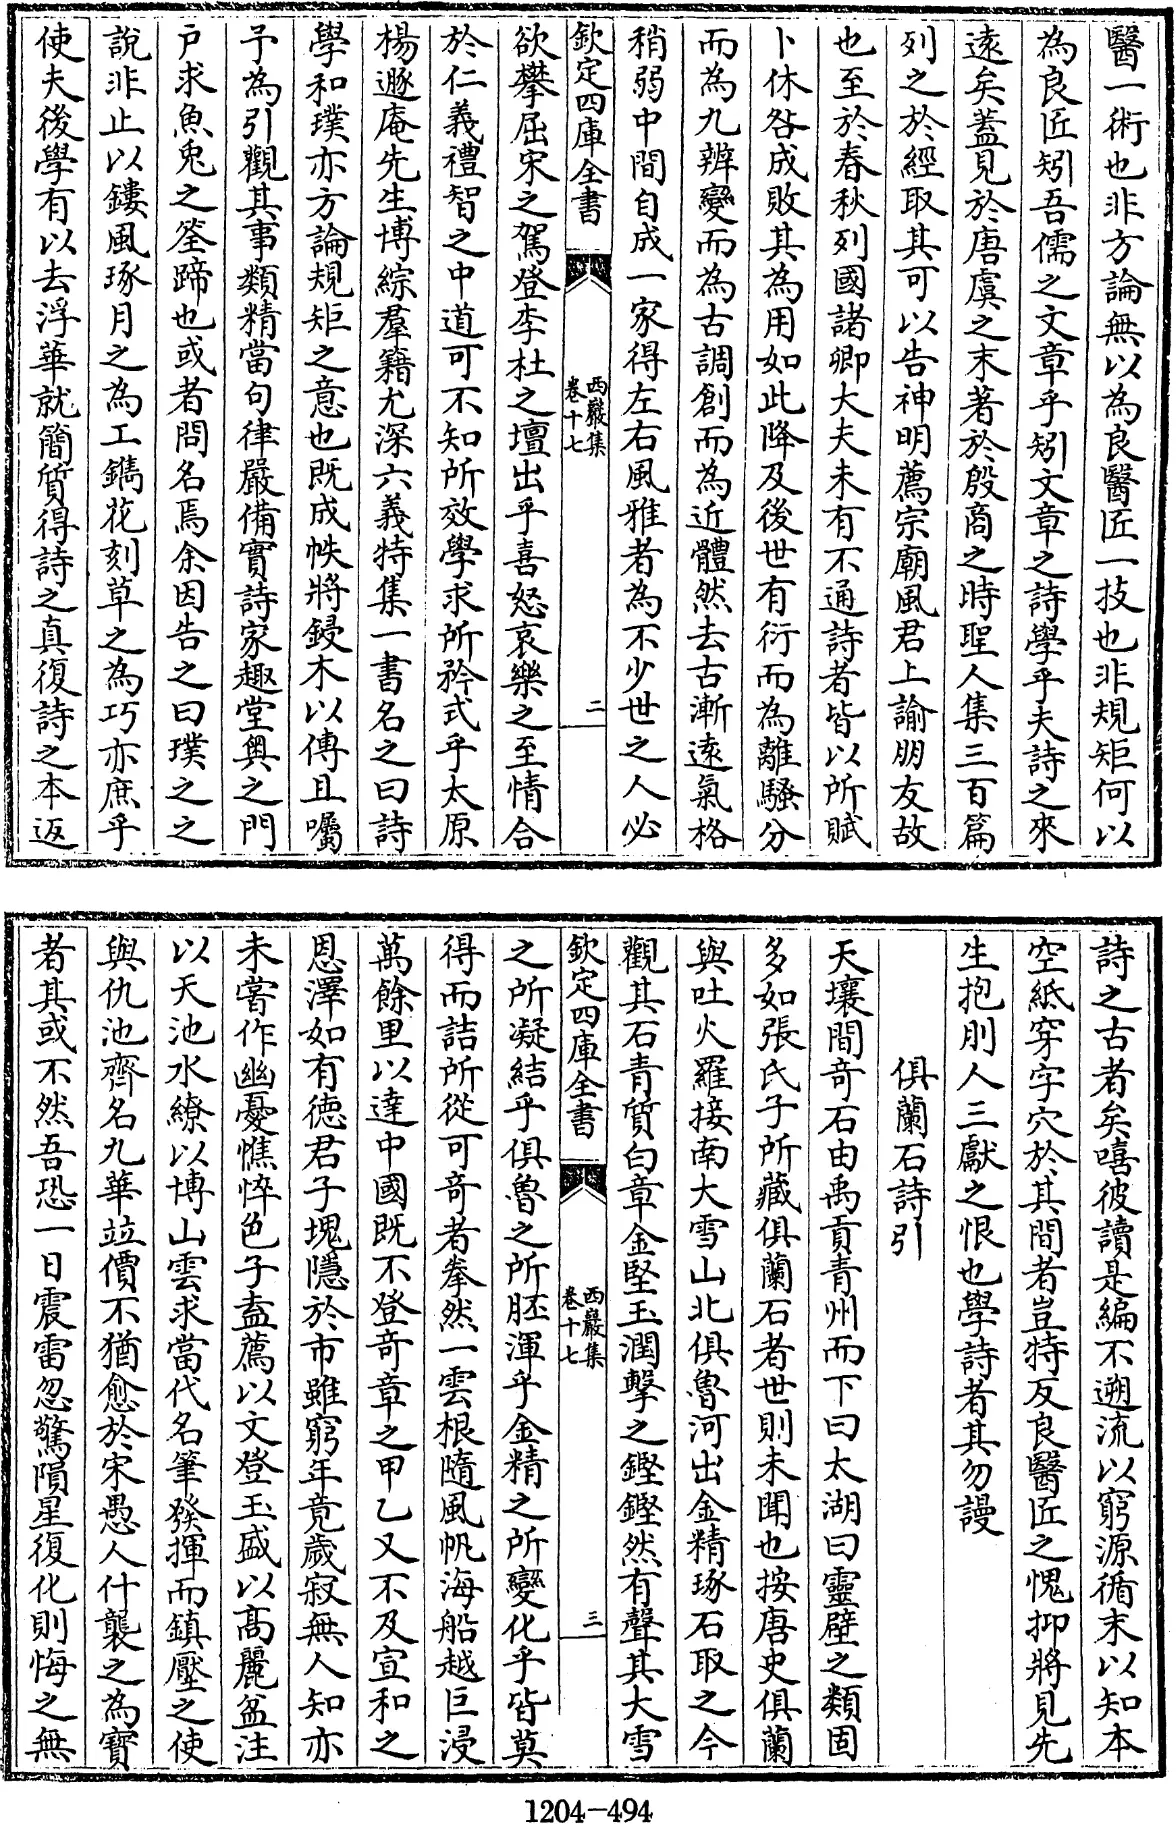 醫一術也非方論無以為良醫匠一技也非規矩何以
為良匠矧吾儒之文章乎矧文章之詩學乎夫詩之來
遠矣蓋見於唐虞之末著於殷商之時聖人集三百篇
列之於經取其可以告神明薦宗廟風君上諭朋友故
也至於春秋列國諸卿大夫未有不通詩者皆以所賦
卜休咎成敗其為用如此降及後世有衍而為離騷分
而為九辨變而為古調創而為近體然去古漸遠氣格
稍弱中間自成一家得左右風雅者為不少世之人必
欽定四庫全書
西巖集
卷十七
二
欲攀屈宋之駕登李杜之壇出乎喜怒哀樂之至情合
於仁義禮智之中道可不知所效學求所矜式乎太原
楊遯庵先生博綜羣籍尤深六義特集一書名之曰詩
學和璞亦方論規矩之意也既成帙將鋟木以傳且囑
予為引觀其事類精當句律嚴備實詩家趣堂奧之門
戶求魚兎之筌蹄也或者問名焉余因告之曰璞之之
說非止以鏤風琢月之為工鐫花刻草之為巧亦庶乎
使夫後學有以去浮華就簡質得詩之真復詩之本返
詩之古者矣嘻彼讀是編不遡流以窮源循末以知本
空紙穿字穴於其間者豈特反良醫匠之愧抑將見先
生抱刖人三獻之恨也學詩者其勿謾
俱蘭石詩引
天壤間奇石由禹貢青州而下曰太湖曰靈壁之類固
多如張氏子所藏俱蘭石者世則未聞也按唐史俱蘭
與吐火羅接南大雪山北俱魯河出金精琢石取之今
觀其石青質白章金堅玉潤擊之鏗鏗然有聲其大雪
欽定四庫全書
西巖集
卷十七
三
之所凝結乎俱魯之所胚渾乎金精之所變化乎皆莫
得而詰所從可奇者拳然一雲根隨風帆海船越巨浸
萬餘里以達中國既不登奇章之甲乙又不及宣和之
恩澤如有德君子塊隱於市雖窮年竟歲寂無人知亦
未嘗作幽憂憔悴色子盍薦以文登玉盛以高麗盆注
以天池水繚以博山雲求當代名筆發揮而鎮壓之使
與仇池齊名九華竝價不猶愈於宋愚人什襲之為寶
者其或不然吾恐一日震雷忽驚隕星復化則悔之無
1204-494